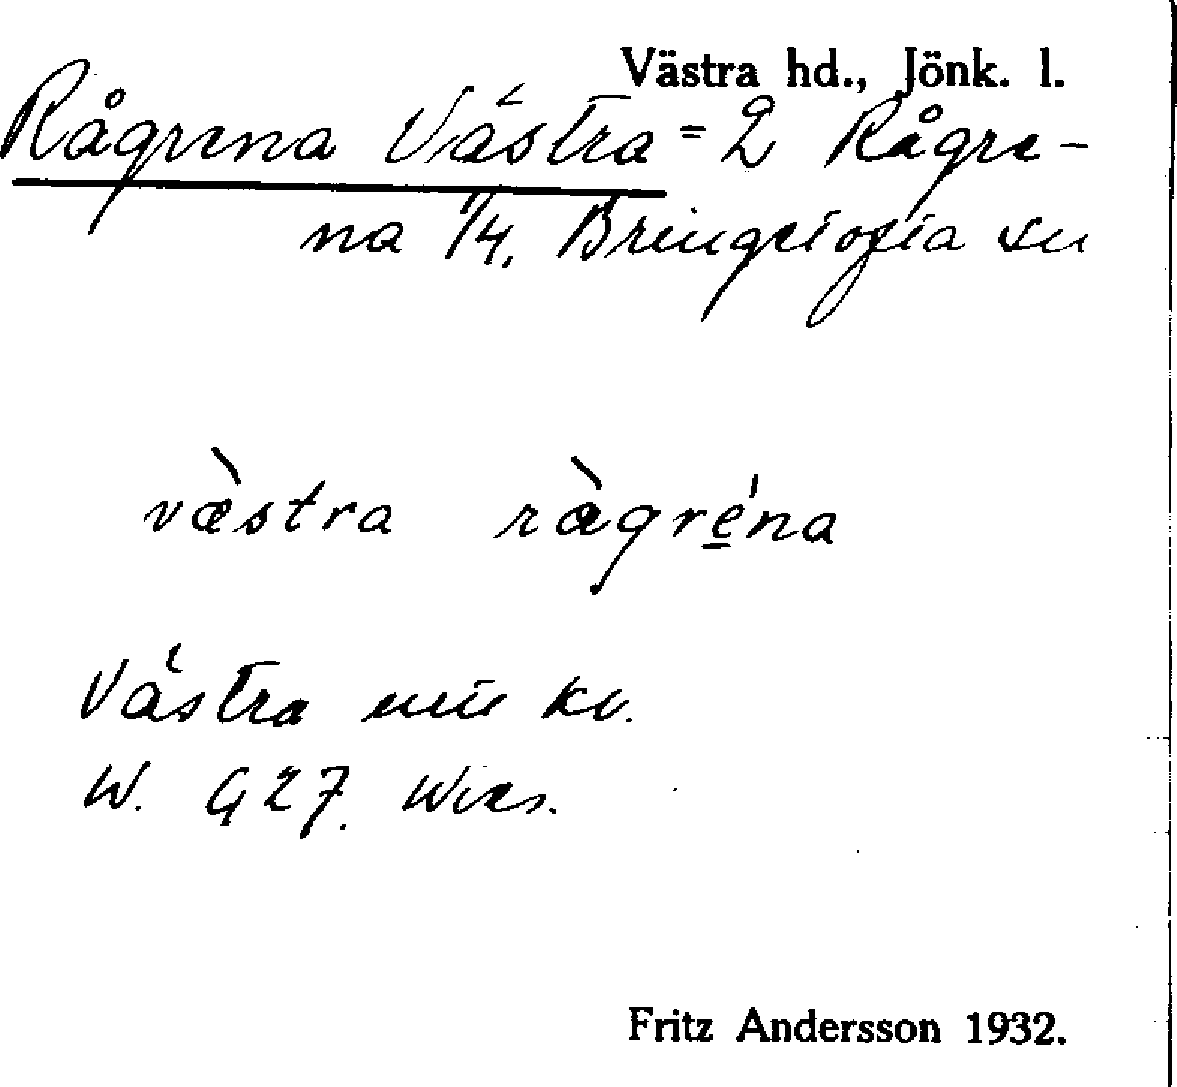 Västra hd., Jönk. l.
Rågrena Västra = 2 Rågre-
na 1/4, Bringetofta sn
væ̀stra rågré̲na
Västra
W. G 27.
Fritz Andersson 1932.